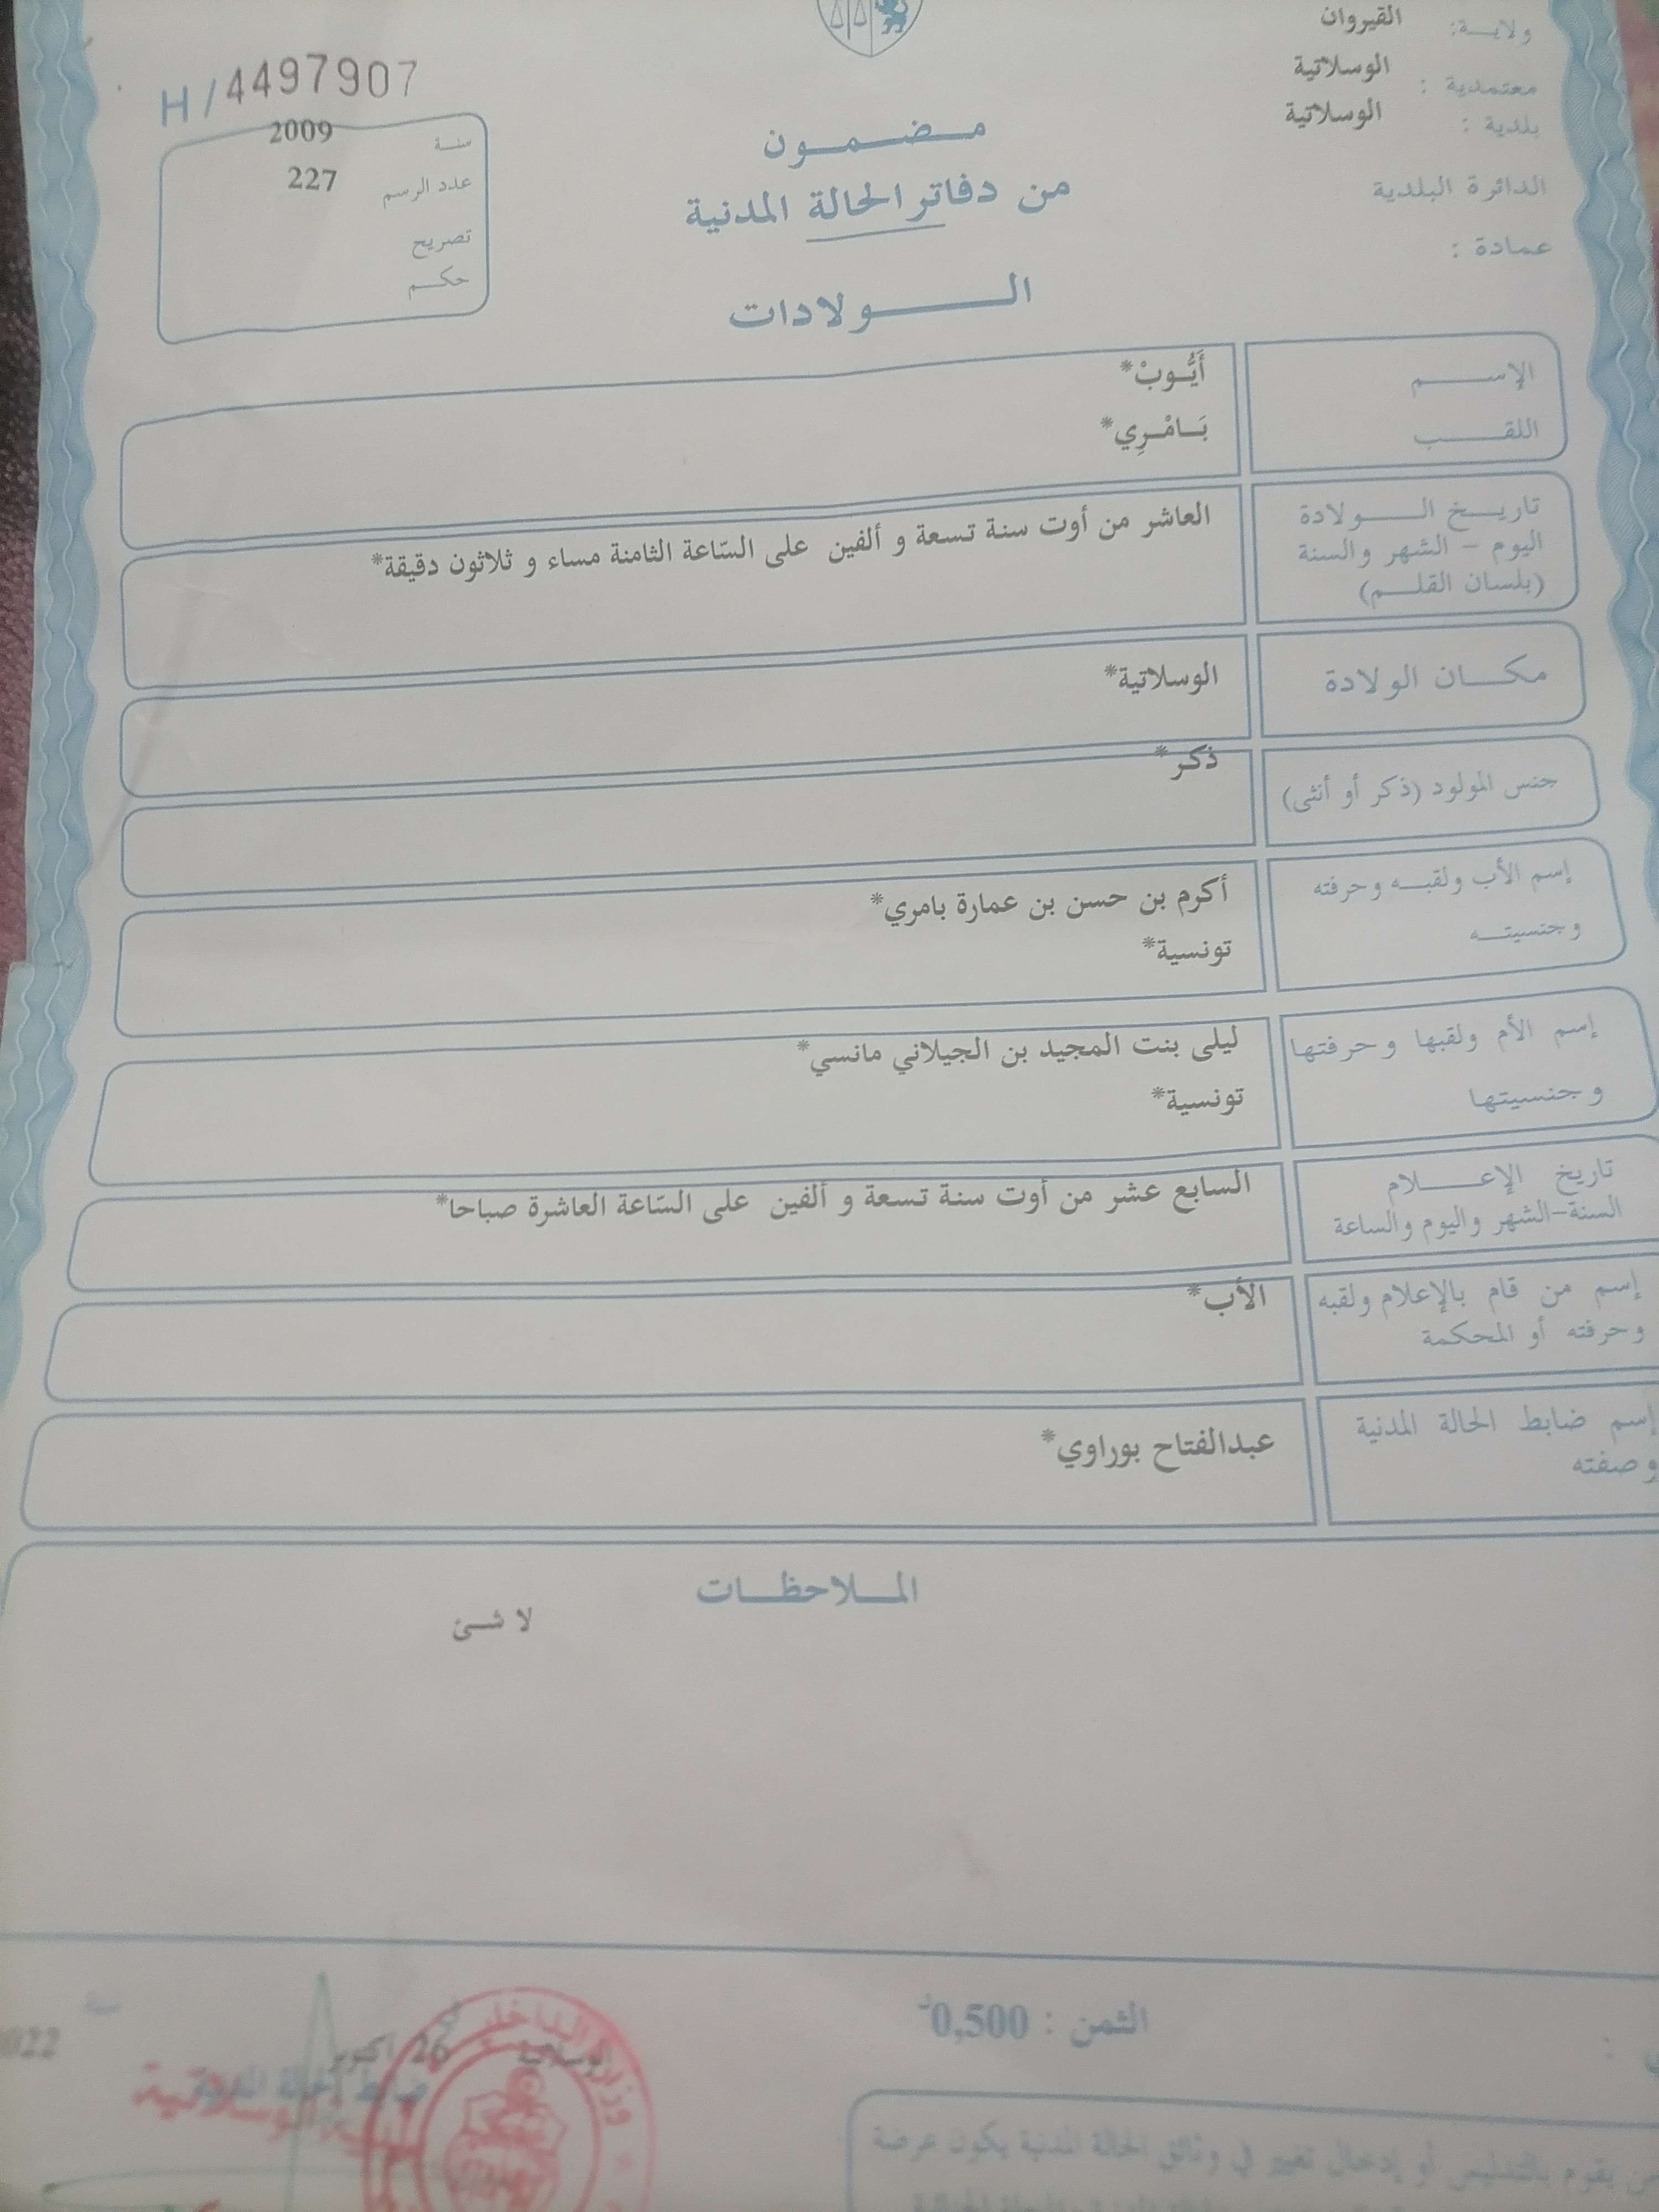 ولاية: القيروان
معتمدية : الوسلاتية
بلدية : الوسلاتية
الدائرة البلدية
عمادة :
H/4497907
سنة 2009
عدد الرسم 227
تصريح
حكم
مضمون
من دفاتر الحالة المدنية
الولادات
الإسم أَيُّوبْ*
اللقب بَامْرِي*
تاريخ الولادة
اليوم - الشهر والسنة
(بلسان القلم)
العاشر من أوت سنة تسعة و ألفين على السّاعة الثامنة مساء و ثلاثون دقيقة*
مكان الولادة الوسلاتية*
جنس المولود (ذكر أو أنثى) ذكر*
إسم الأب ولقبه وحرفته
وجنسيته
أكرم بن حسن بن عمارة بامري*
تونسية*
إسم الأم ولقبها وحرفتها
وجنسيتها
ليلى بنت المجيد بن الجيلاني مانسي*
تونسية*
تاريخ الإعلام
السنة-الشهر واليوم والساعة
السابع عشر من أوت سنة تسعة و ألفين على السّاعة العاشرة صباحا*
إسم من قام بالإعلام ولقبه
وحرفته أو المحكمة
الأب*
إسم ضابط الحالة المدنية
وصفته
عبدالفتاح بوراوي*
الملاحظات
لا شئ
الثمن : 0,500د
الوسلاتية في 26 أكتوبر
سنة
ضابط الحالة المدنية
الوسلاتية
وزارة الداخلية
من يقوم بالتدليس أو إدخال تغيير في وثائق الحالة المدنية يكون عرضة